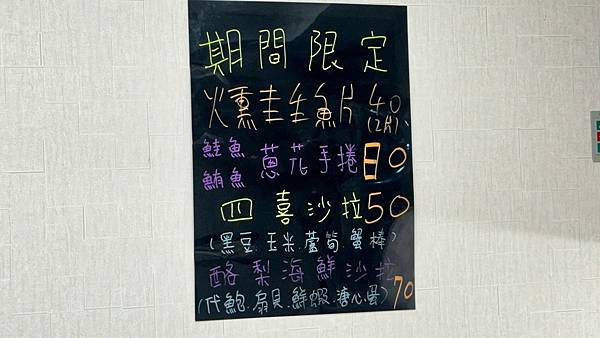 期間限定
燻圭生魚片 40
(2片)
鮭魚
鮪魚
蔥花手捲
四喜沙拉 50
(黑豆.玉米.蘆筍.蟹棒)
酪梨海鮮沙拉
(代鮑.扇貝.鮮蝦.溏心蛋) 70